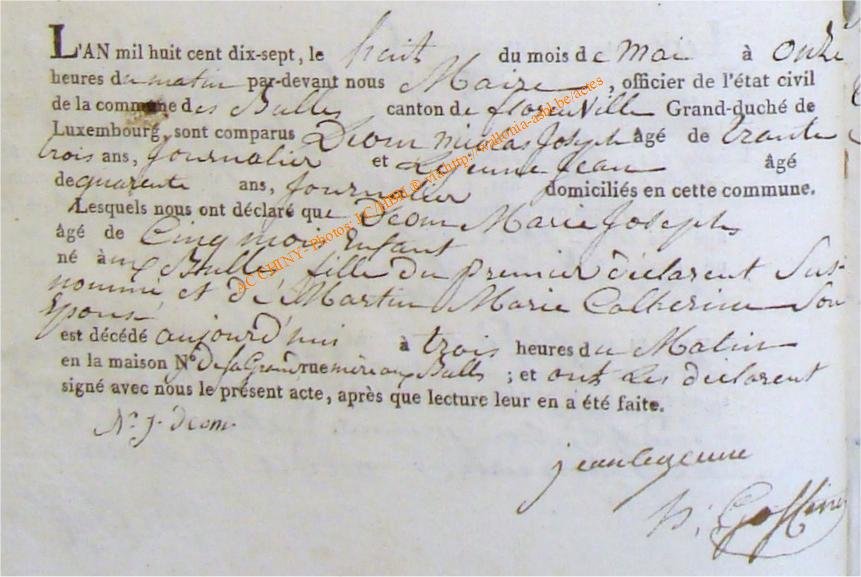 L'AN mil huit cent dix-sept, le huit du mois de mai à onze
heures du matin par-devant nous Maire, officier de l'état civil
de la commune des Bulles canton de florenville Grand-duché de
Luxembourg, sont comparus Deom nicolas Joseph âgé de trante
trois ans, journalier et Lejeune Jean âgé
de quarente ans, journalier domiciliés en cette commune.
Lesquels nous ont déclaré que Deom Marie Joseph
âgé de Cinq moi Enfant
né à aux Bulles fille du premier déclarent Sus-
nommé et de Martin Marie Catherine Son
Epouse
est décédé aujourd'hui à trois heures du Matin
en la maison N° de sa Grand mère aux Bulles ; et ont les déclarent
signé avec nous le présent acte, après que lecture leur en a été faite.
N. j. deom
jean lejeune
Goffinet
AC CHINY- Photos: LC/HBN © via http://wallonia-asbl.be/actes